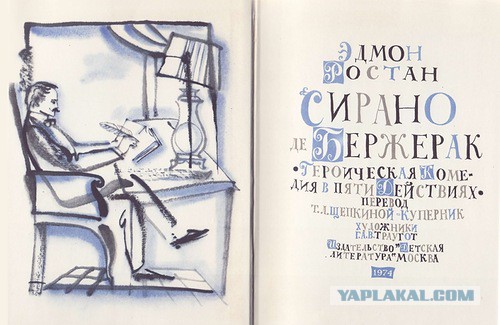 ЭДМОН
РОСТАН
СИРАНО
ДЕ БЕРЖЕРАК
• ГЕРОИЧЕСКАЯ КОМЕ-
ДИЯ В ПЯТИ ДЕЙСТВИЯХ •
ПЕРЕВОД
Т.Л.ЩЕПКИНОЙ-КУПЕРНИК
ХУДОЖНИКИ
Г.А.В.ТРАУГОТ
ИЗДАТЕЛЬСТВО "ДЕТСКАЯ
ЛИТЕРАТУРА" МОСКВА
1974
YAPLAKAL.COM